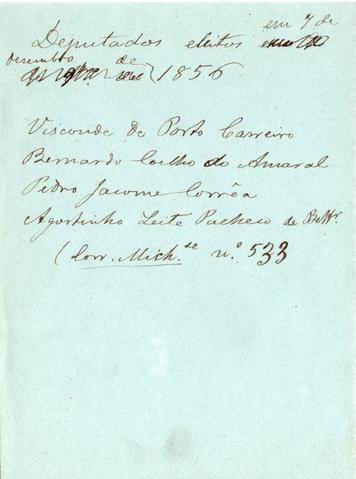 Deputados eleitos em 7 de
Dezembro de 1856
Visconde de Porto Carreiro
Bernardo Coelho do Amaral
Pedro Jacome Corrêa
Agostinho Leite Pacheco de Bettr.
(Corr. Mich.se n.º 533